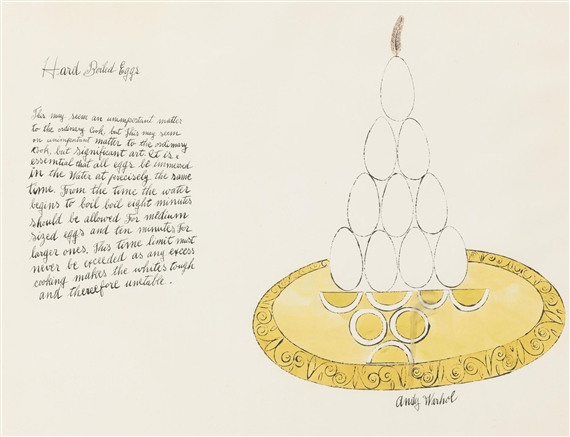 Hard Boiled Eggs
This may seem an unimportant matter
to the ordinary Cook, but This may seem
an unimportant matter to the ordinary
Cook, but significant art. It is
essential that all eggs be immersed
in the Water at precisely the same
time. From the time the water
begins to boil boil eight minutes
should be allowed For medium
sized eggs and ten minutes For
larger ones. This time limit must
never be exceeded as any excess
cooking makes the whites tough
and therefore unetable.
Andy Warhol